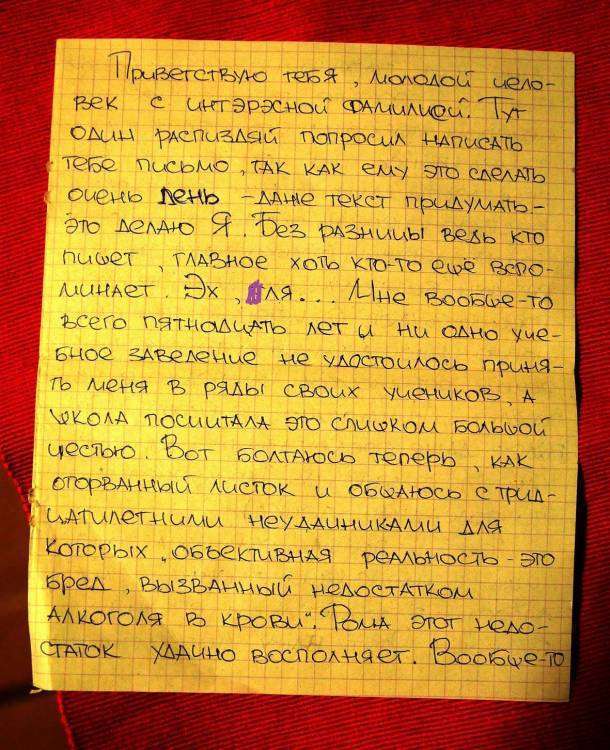 Приветствую тебя, молодой чело-
век с интэрэсной фамилией. Тут
один распиздяй попросил написать
тебе письмо, так как ему это сделать
очень лень - даже текст придумать -
это делаю Я. Без разницы ведь кто
пишет, главное хоть кто-то ещё вспо-
минает. Эх, бля... Мне вообще-то
всего пятнадцать лет и ни одно уче-
бное заведение не удостоилось приня-
ть меня в ряды своих учеников, а
школа посчитала это слишком большой
честью. Вот болтаюсь теперь, как
оторванный листок и общаюсь с трид-
цатилетними неудачниками для
которых „объективная реальность - это
бред, вызванный недостатком
алкоголя в крови“. Рома этот недо-
статок удачно восполняет. Вообще-то